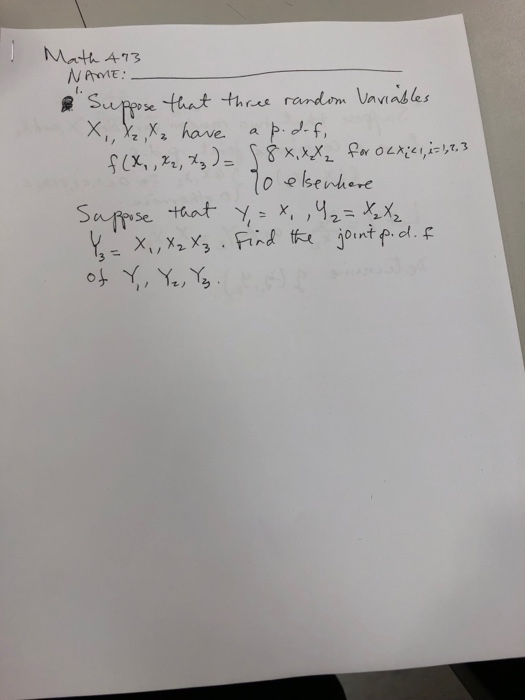 Math 473
NAME:
1. Suppose that three random Variables
X₁, X₂, X₃ have a p.d.f,
f(x₁, x₂, x₃) = { 8 x₁x₂x₂ for 0<xᵢ<1, i=1,2,3
0 elsewhere
Suppose that Y₁ = X₁, Y₂ = X₂X₂
Y₃ = X₁, X₂ X₃. Find the joint p.d.f
of Y₁, Y₂, Y₃.